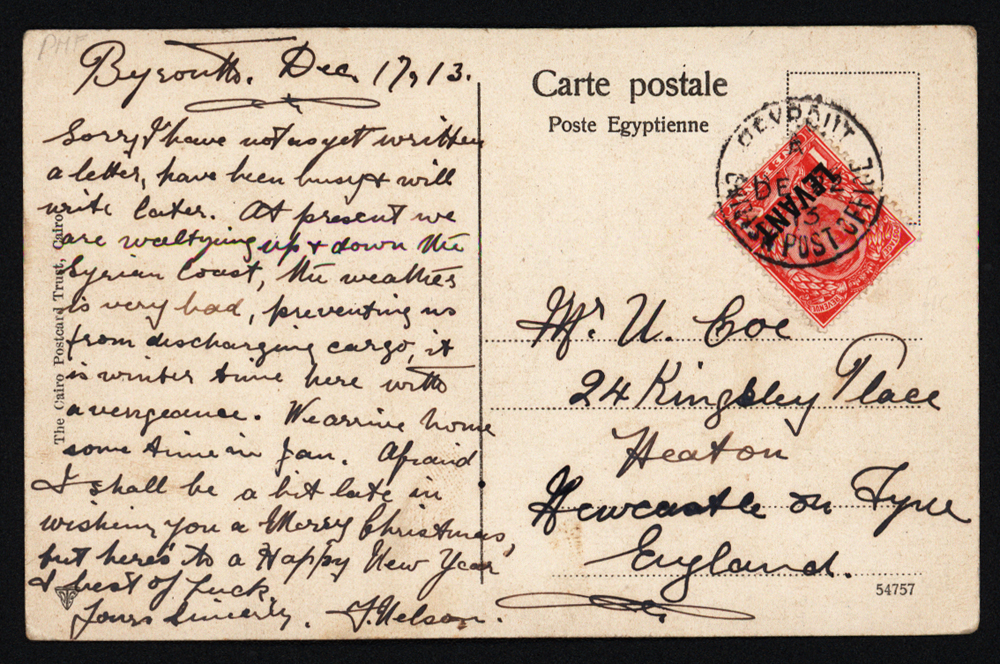 Byroutts. Dec. 17, 13.
Sorry I have not as yet written
a letter, have been busy & will
write later. At present we
are waltzying up & down the
Syrian Coast, the weather
is very bad, preventing us
from discharging cargo, it
is winter time here with
a vengeance. We arrive home
some time in Jan. Afraid
I shall be a bit late in
wishing you a Merry Christmas,
but here's to a Happy New Year
& best of luck
Yours Sincerely, J. Nelson.
The Cairo Postcard Trust, Cairo
Carte postale
Poste Egyptienne
BEYROUT
A
DE 2
13
BRITISH POST OFFICE
LEVANT
Mr. U. Coe
24 Kingsley Place
Heaton
Newcastle on Tyne
England.
54757